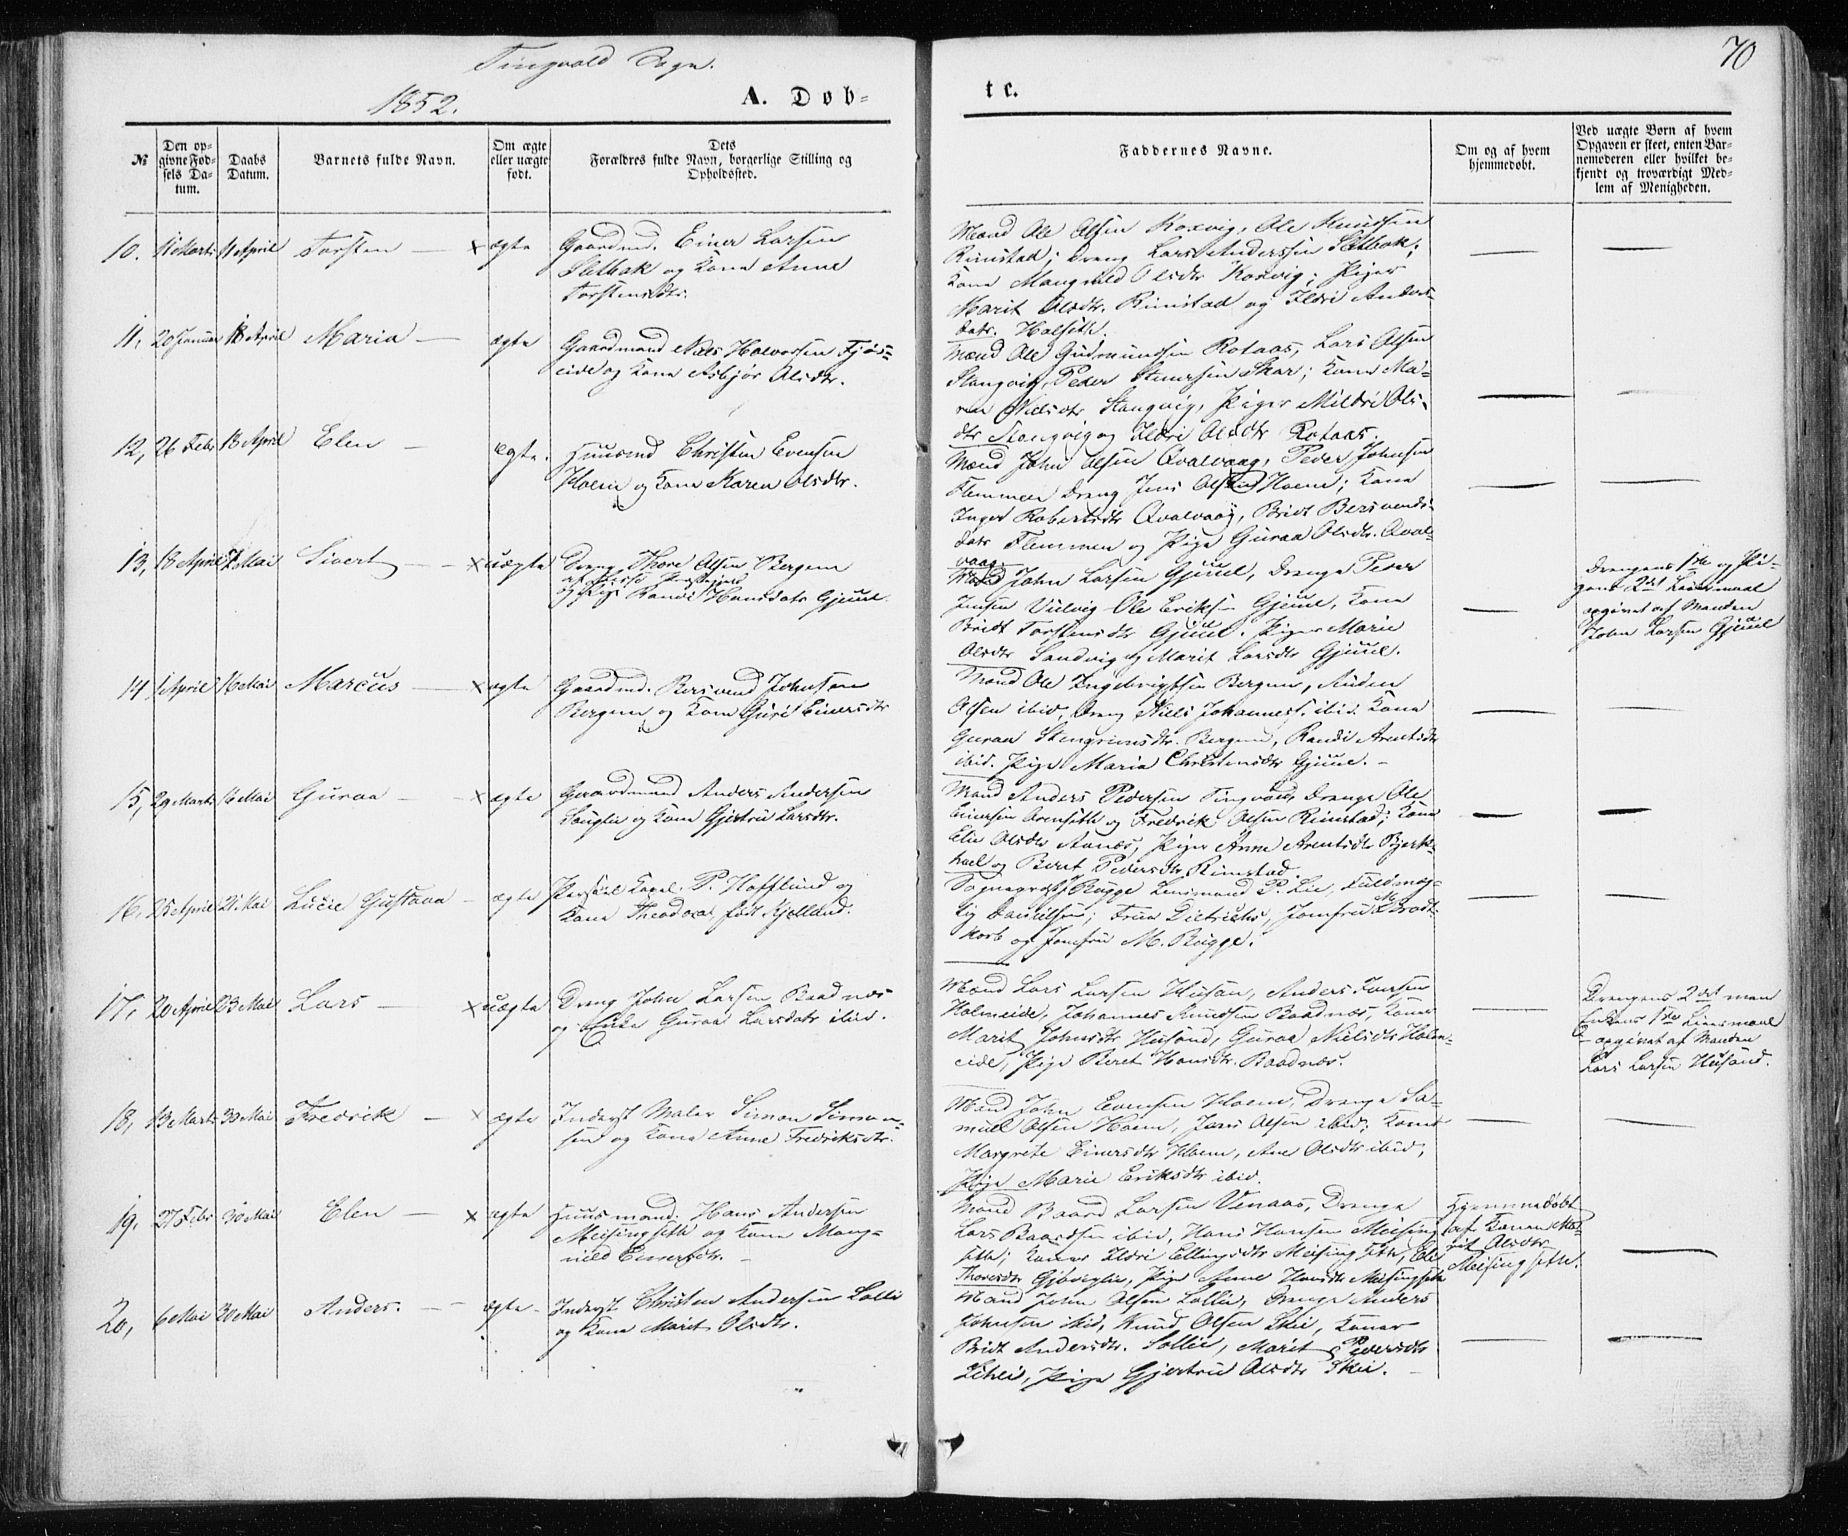 Tingvold Sogn.
70
1852.
A. Døb-
te.
№
Den op-
givne Fød-
sels Da-
tum.
Daabs
Datum.
Barnets fulde Navn.
Om ægte
eller uægte
født.
Dets
Forældres fulde Navn, borgerlige Stilling og
Opholdssted.
Faddernes Navne.
Om og af hvem
hjemmedøbt.
Ved uægte Børn af hvem
Opgaven er skeet, enten Bar-
nemoderen eller hvilket be-
kjendt og troværdigt Med-
lem af Menigheden.
10. 11 Marts 11 April Torsten — x ægte
Gaardmd. Einer Larsen
Sletbak og Kone Anne
Torstensdtr.
Mænd Ole Olsen Koxvig, Ole Knudsen
Rimstad; Dreng Lars Anderssen Sletbak;
Kone Mangnild Olsdtr Koxvig; Piger
Marit Olsdtr. Rimstad og Ildri Anders-
datr. Holseth.
11, 20 Januar 18 April Maria — ægte
Gaardmand Niels Halvorsen Fjøs-
eide og Kone Asbjør Olsdtr.
Mænd Ole Gudmundsen Rotaas, Lars Olsen
Stangvig, Peder Skar; Kone Ma-
ren Nielsdtr Stangvig, Piger Mildri Ols-
dtr Stangvig og Ildri Olsdtr Rotaas.
12, 26 Febr 18 April Elen — ægte.
Huusmd Christen Evensen
Hoem og Kone Karen Olsdtr.
Mænd John Olsen Qvalvaag, Peder Johnsen
Flemmen Dreng Jens Olsen Hoem; Kone
Inger Robertsdtr Qvalvaag, Bridt Bersvends-
datr Flemmen og Pige Guraa Olsdtr. Qval-
vaag.
13, 18 April 7 Mai Sivert — x uægte
Dreng Thore Olsen Bergem
og Pige Randi Hansdatr Gjuul.
Mænd John Larsen Gjuul, Drenge Peder
Jensen Ole Eriksen Gjuul, Kone
Bridt Torstensdtr Gjuul. Piger Marie
Olsdtr Sandvig og Marit Larsdtr Gjuul.
Drengens 1ste og Pi-
gens 2det Leiermaal
opgivet af Manden
John Larsen Gjuul
14, 1 April 16 Mai Marcus — x ægte
Gaardmd. Bersvend Johnsen
Bergem og Kone Guri Einersdtr
Mænd Ole Ingebrigtsen Bergem, Anders
Olsen ibid, Dreng Niels Johannes. ibid. Kone
Guraa Stengrimsdtr. Bergem, Randi Arentsdtr
ibid. Pige Maria Christensdtr Gjuul. —
15, 29 Marts 16 Mai Guraa — x ægte
Gaardmand Anders Andersen
og Kone Gjertru Larsdtr.
Mænd Anders Pedersen Tingvold, Drenge Ole
Einersen og Fredrik Olsen Rimstad; Kone
Eli Olsdtr Aanæs, Piger Anne Arentsdtr Bjerk-
hoel og Beret Pedersdtr Rimstad.
16, 25 April 21 Mai Lucie Gustava — ægte
Kapel. P. Hofflund og
Kone Theodora født Kjelland.
Sognepræst Bugge Lensmand P. Lie, Fuldmæg-
tig Danielsen; Frue Dietrichs, Jomfru M. Brodt-
korb og Jomfru M. Bugge.
17, 20 April 23 Mai Lars — x uægte
Dreng John Larsen Baadnæs
og Enke Guraa Larsdatr ibid.
Mænd Lars Larsen Husan, Anders Iversen
Holmeide, Johannes Knudsen Baadnæs, Koner
Marit Johnsdtr Husand, Guraa Nielsdtr Holm-
eide, Pige Beret Hansdtr. Baadnæs.
Drengens 2det men
Enkens 1ste Leiermaal
— opgivet af Manden
Lars Larsen Husand.
18, 13 Marts 30 Mai Fredrik — x ægte
Inderst Maler Simon Simon-
sen og Kone Anne Fredriksdtr.
Mænd John Evensen Hoem, Drenge Sa-
muel Olsen Hoem, Jens Olsen ibid; Koner
Margrete Einersdtr Hoem, Ane Olsdtr ibid,
Pige Marie Eriksdtr ibid.
19. 27 Febr 30 Mai Elen — x ægte
Huusmand. Hans Andersen
Meisingseth og Kone Mang-
nild Einersdtr. —
Mænd Baard Larsen Venaas, Drenge
Lars Baardsen ibid, Hans Hansen Meising-
seth; Koner Ildri Ellingsdtr Meisingseth, Eli
Thoresdtr Gjøviglie, Pige Anne Hansdtr Meisingseth
Hjemmedøbt
af Konen Ma-
rit Olsdtr
Meisingseth.
20, 6 Mai 30 Mai Anders. — ægte —
Inderst Christen Andersen Sollie
og Kone Marit Olsdtr.
Mænd John Olsen Sollie, Drenge Anders
Johnsen ibid, Knud Olsen Skei, Koner
Bridt Andersdtr. Sollie, Marit Pedersdtr
Skei, Pige Gjertru Olsdtr Skei. —